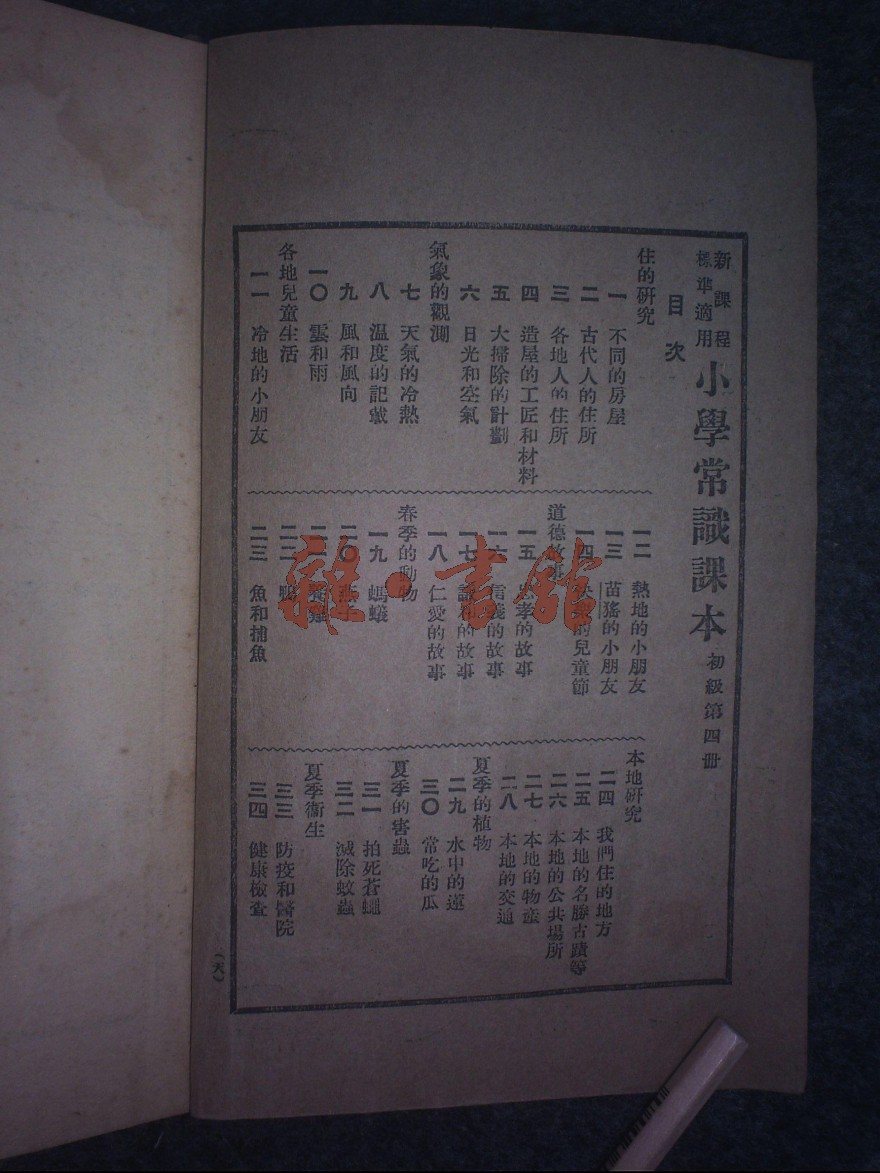 新課程
標準適用
小學常識課本
初級第四册
目次
住的研究
一 不同的房屋
二 古代人的住所
三 各地人的住所
四 造屋的工匠和材料
五 大掃除的計劃
六 日光和空氣
氣象的觀測
七 天氣的冷熱
八 温度的記載
九 風和風向
一〇 雲和雨
各地兒童生活
一一 冷地的小朋友
一二 熱地的小朋友
一三 苗猺的小朋友
道德故事
一四 快樂的兒童節
一五 孝的故事
一六 信義的故事
一七 的故事
一八 仁愛的故事
春季的動物
一九 螞蟻
二〇 燕子
二一
二二 鴨
二三 魚和捕魚
本地研究
二四 我們住的地方
二五 本地的名勝古蹟等
二六 本地的公共場所
二七 本地的物產
二八 本地的交通
夏季的植物
二九 水中的蓮
三〇 常吃的瓜
夏季的害蟲
三一 拍死蒼蠅
三二 滅除蚊蟲
夏季衞生
三三 防疫和醫院
三四 健康檢查
(天)
雜·書館